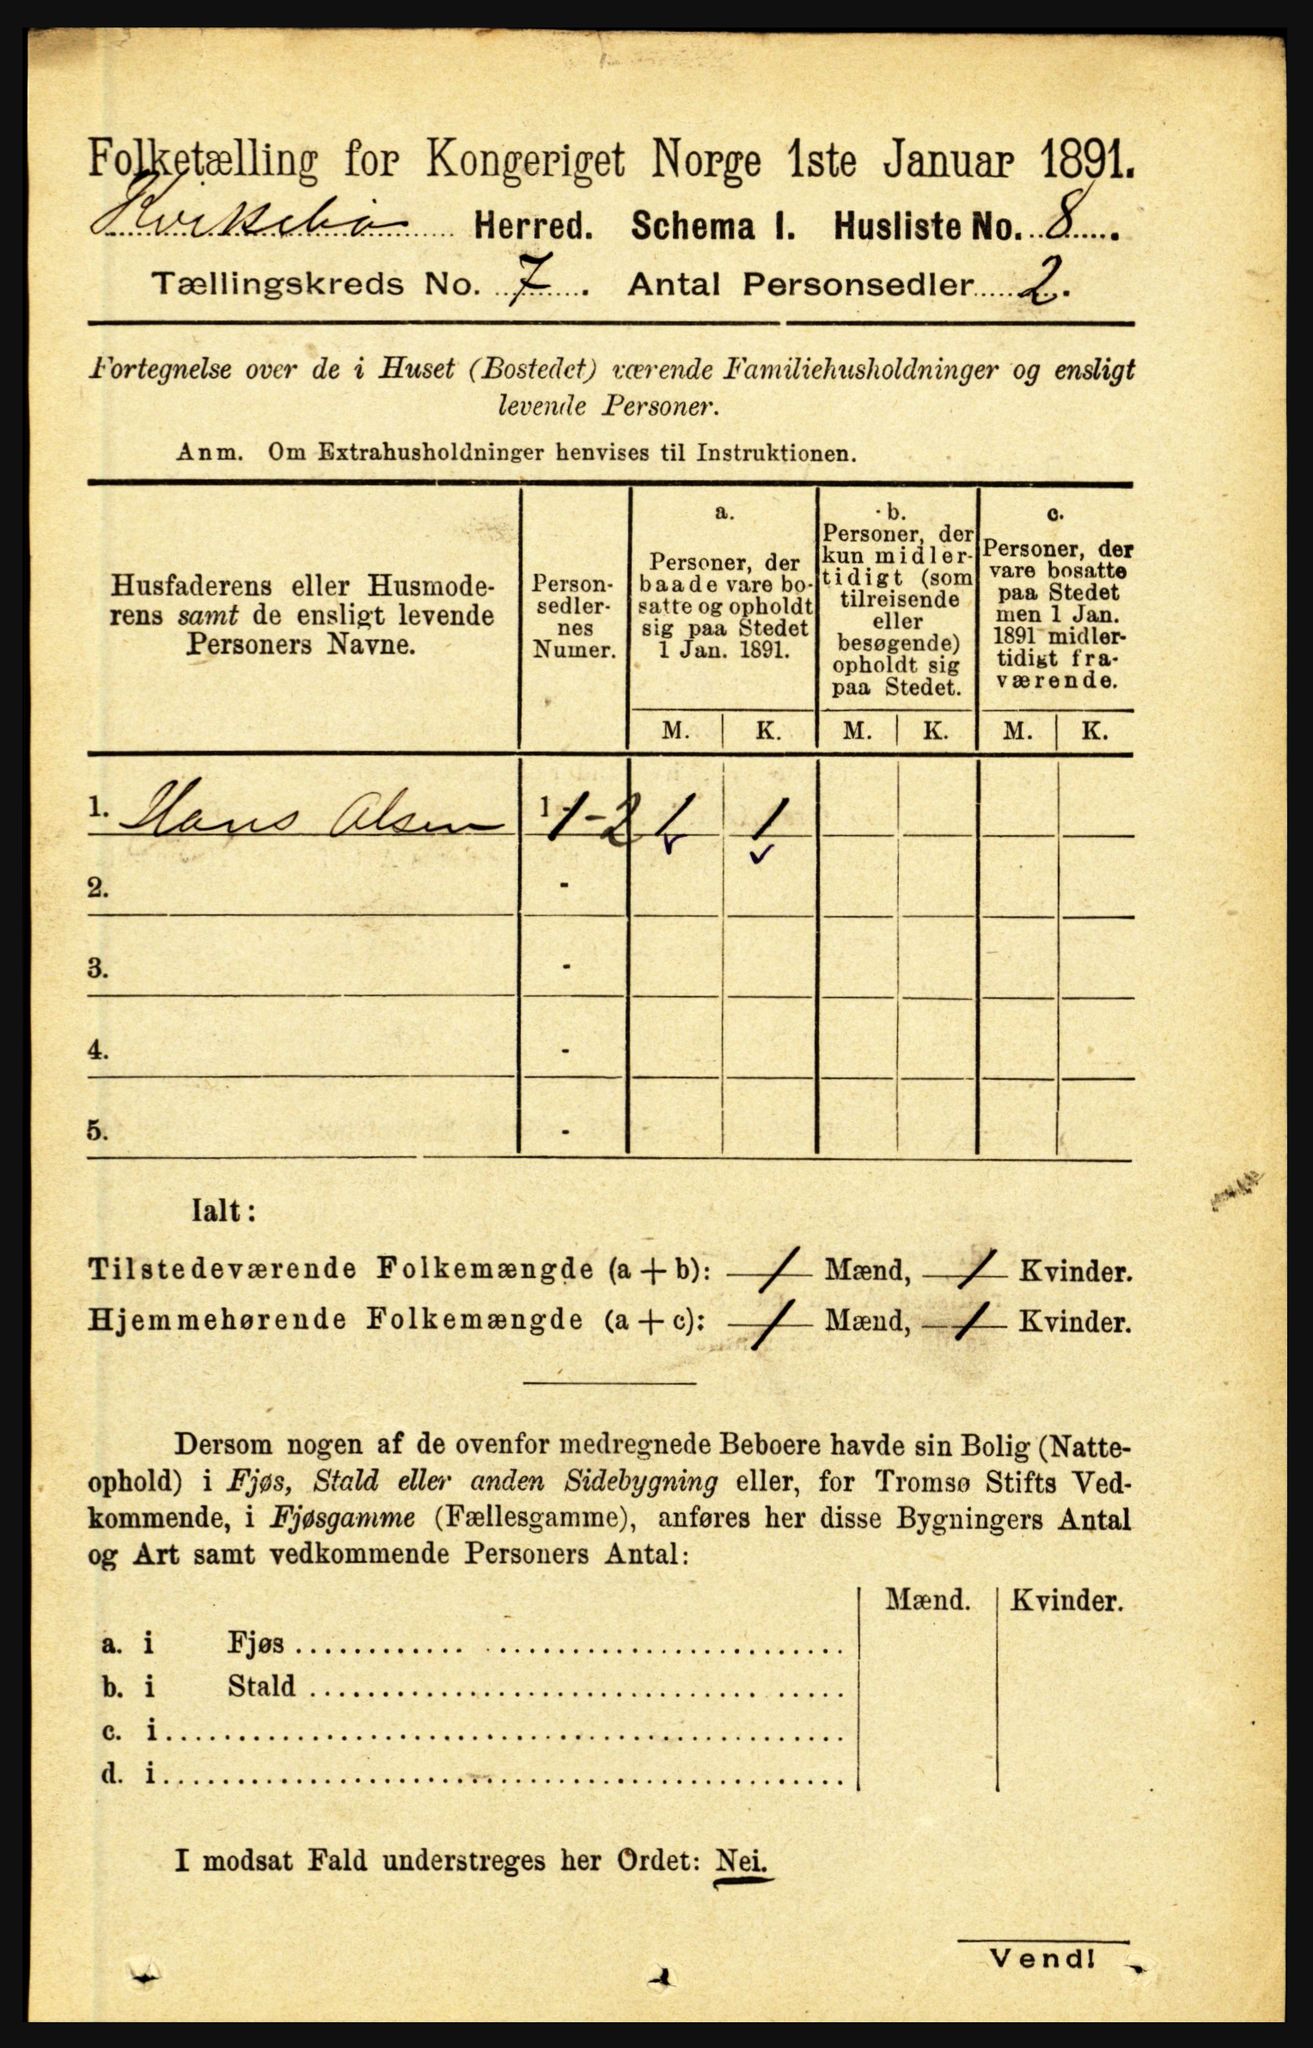 Folketælling for Kongeriget Norge 1ste Januar 1891.
Kirkebø Herred. Schema I. Husliste No. 8.
Tællingskreds No. 7. Antal Personsedler 2.
Fortegnelse over de i Huset (Bostedet) værende Familiehusholdninger og ensligt
levende Personer.
Anm. Om Extrahusholdninger henvises til Instruktionen.
Husfaderens eller Husmode-
rens samt de ensligt levende
Personers Navne.
Person-
sedler-
nes
Numer.
a.
Personer, der
baade vare bo-
satte og opholdt
sig paa Stedet
1 Jan. 1891.
b.
Personer, der
kun midler-
tidigt (som
tilreisende
eller
besøgende)
opholdt sig
paa Stedet.
c.
Personer, der
vare bosatte
paa Stedet
men 1 Jan.
1891 midler-
tidigt fra-
værende.
M. K. M. K. M. K.
1. Hans Olsen 1 1-2 1 1
2. -
3. -
4. -
5. -
Ialt:
Tilstedeværende Folkemængde (a + b): 1 Mænd, 1 Kvinder.
Hjemmehørende Folkemængde (a + c): 1 Mænd, 1 Kvinder.
Dersom nogen af de ovenfor medregnede Beboere havde sin Bolig (Natte-
ophold) i Fjøs, Stald eller anden Sidebygning eller, for Tromsø Stifts Ved-
kommende, i Fjøsgamme (Fællesgamme), anføres her disse Bygningers Antal
og Art samt vedkommende Personers Antal:
Mænd. Kvinder.
a. i Fjøs
b. i Stald
c. i
d. i
I modsat Fald understreges her Ordet: Nei.
Vend!